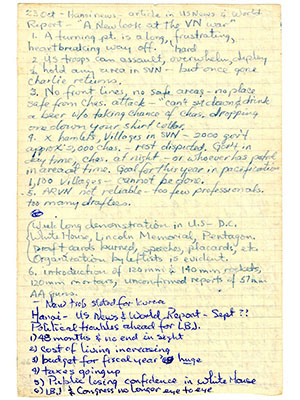 23 Oct - Hanoi news, article in US News & World
Report - "A New look at the VN war"
1. A turning pt. is a long, frustrating,
heartbreaking way off. hard
2. US troops can assault, overwhelm, deploy
& hold any area in SVN - but once gone
Charlie returns.
3. No front lines, no safe areas - no place
safe from Chas. attack - "can't set down & drink
a beer w/o taking chance of Chas. dropping
one down your shirt collar.
4. X hamlets, Villages in SVN - 2000 gov't
approx 2,000 Chas. - rest disputed. Gov't in
day time, Chas. at night - or whoever has patrol
in area at time. Goal for this year in pacification
1,100 villages - cannot be done.
5. ARVN not reliable - too few professionals.
too many draftees.
(Wk long demonstration in U.S - D.C.
White House, Lincoln Memorial, Pentagon.
Draft cards burned, speeches, placards, etc.
Organization by leftists is evident.
6. introduction of 120mm & 140mm rockets,
120mm mortars, unconfirmed reports of 37mm
AA guns.
- New trps slated for Korea
Hanoi - US News & World Report - Sept ?!
Political troubles ahead for L.B.J.
1) 48 months & no end in sight
2) cost of living increasing
3) budget for fiscal year huge
4) taxes going up
5) Public losing confidence in White House
6) L.B.J. & Congress no longer eye to eye